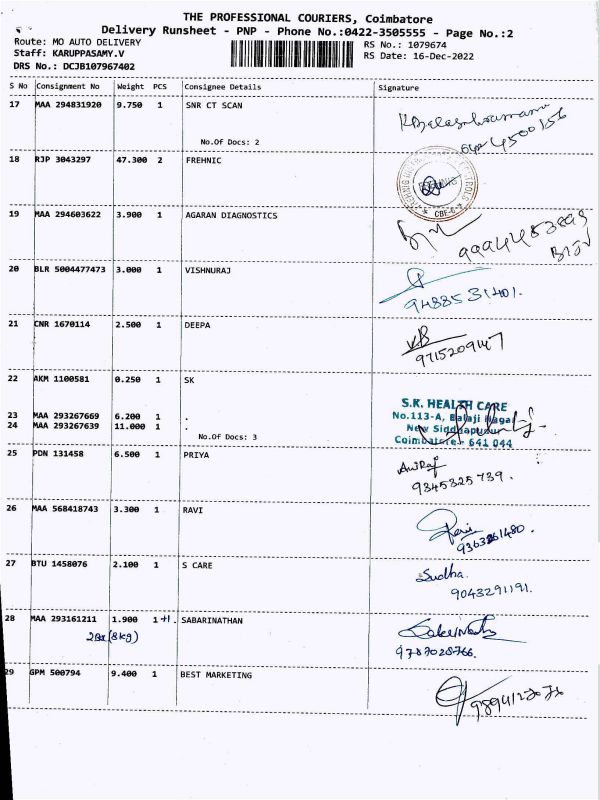 THE PROFESSIONAL COURIERS, Coimbatore
Delivery Runsheet - PNP - Phone No.:0422-3505555 - Page No.:2
Route: MO AUTO DELIVERY RS No.: 1079674
Staff: KARUPPASAMY.V RS Date: 16-Dec-2022
DRS No.: DCJB107967402
S No Consignment No Weight PCS Consignee Details Signature
17 MAA 294831920 9.750 1 SNR CT SCAN
No.Of Docs: 2
4500156
18 RJP 3043297 47.300 2 FREHNIC
CBE-6
19 MAA 294603622 3.900 1 AGARAN DIAGNOSTICS
20 BLR 5004477473 3.000 1 VISHNURAJ
9488531401.
21 CNR 1670114 2.500 1 DEEPA
VB
9715209147
22 AKM 1100581 0.250 1 SK
S.K. HEALTH CARE
No.113-A, Balaji Nagar
New Siddhapudur
Coimbatore - 641 044
23 MAA 293267669 6.200 1 .
24 MAA 293267639 11.000 1 .
No.Of Docs: 3
25 PDN 131458 6.500 1 PRIYA
9345325739.
26 MAA 568418743 3.300 1 RAVI
27 BTU 1458076 2.100 1 S CARE
Sudha.
9043291191.
28 MAA 293161211 1.900 1+1. SABARINATHAN
(8kg)
9787028766.
29 GPM 500794 9.400 1 BEST MARKETING